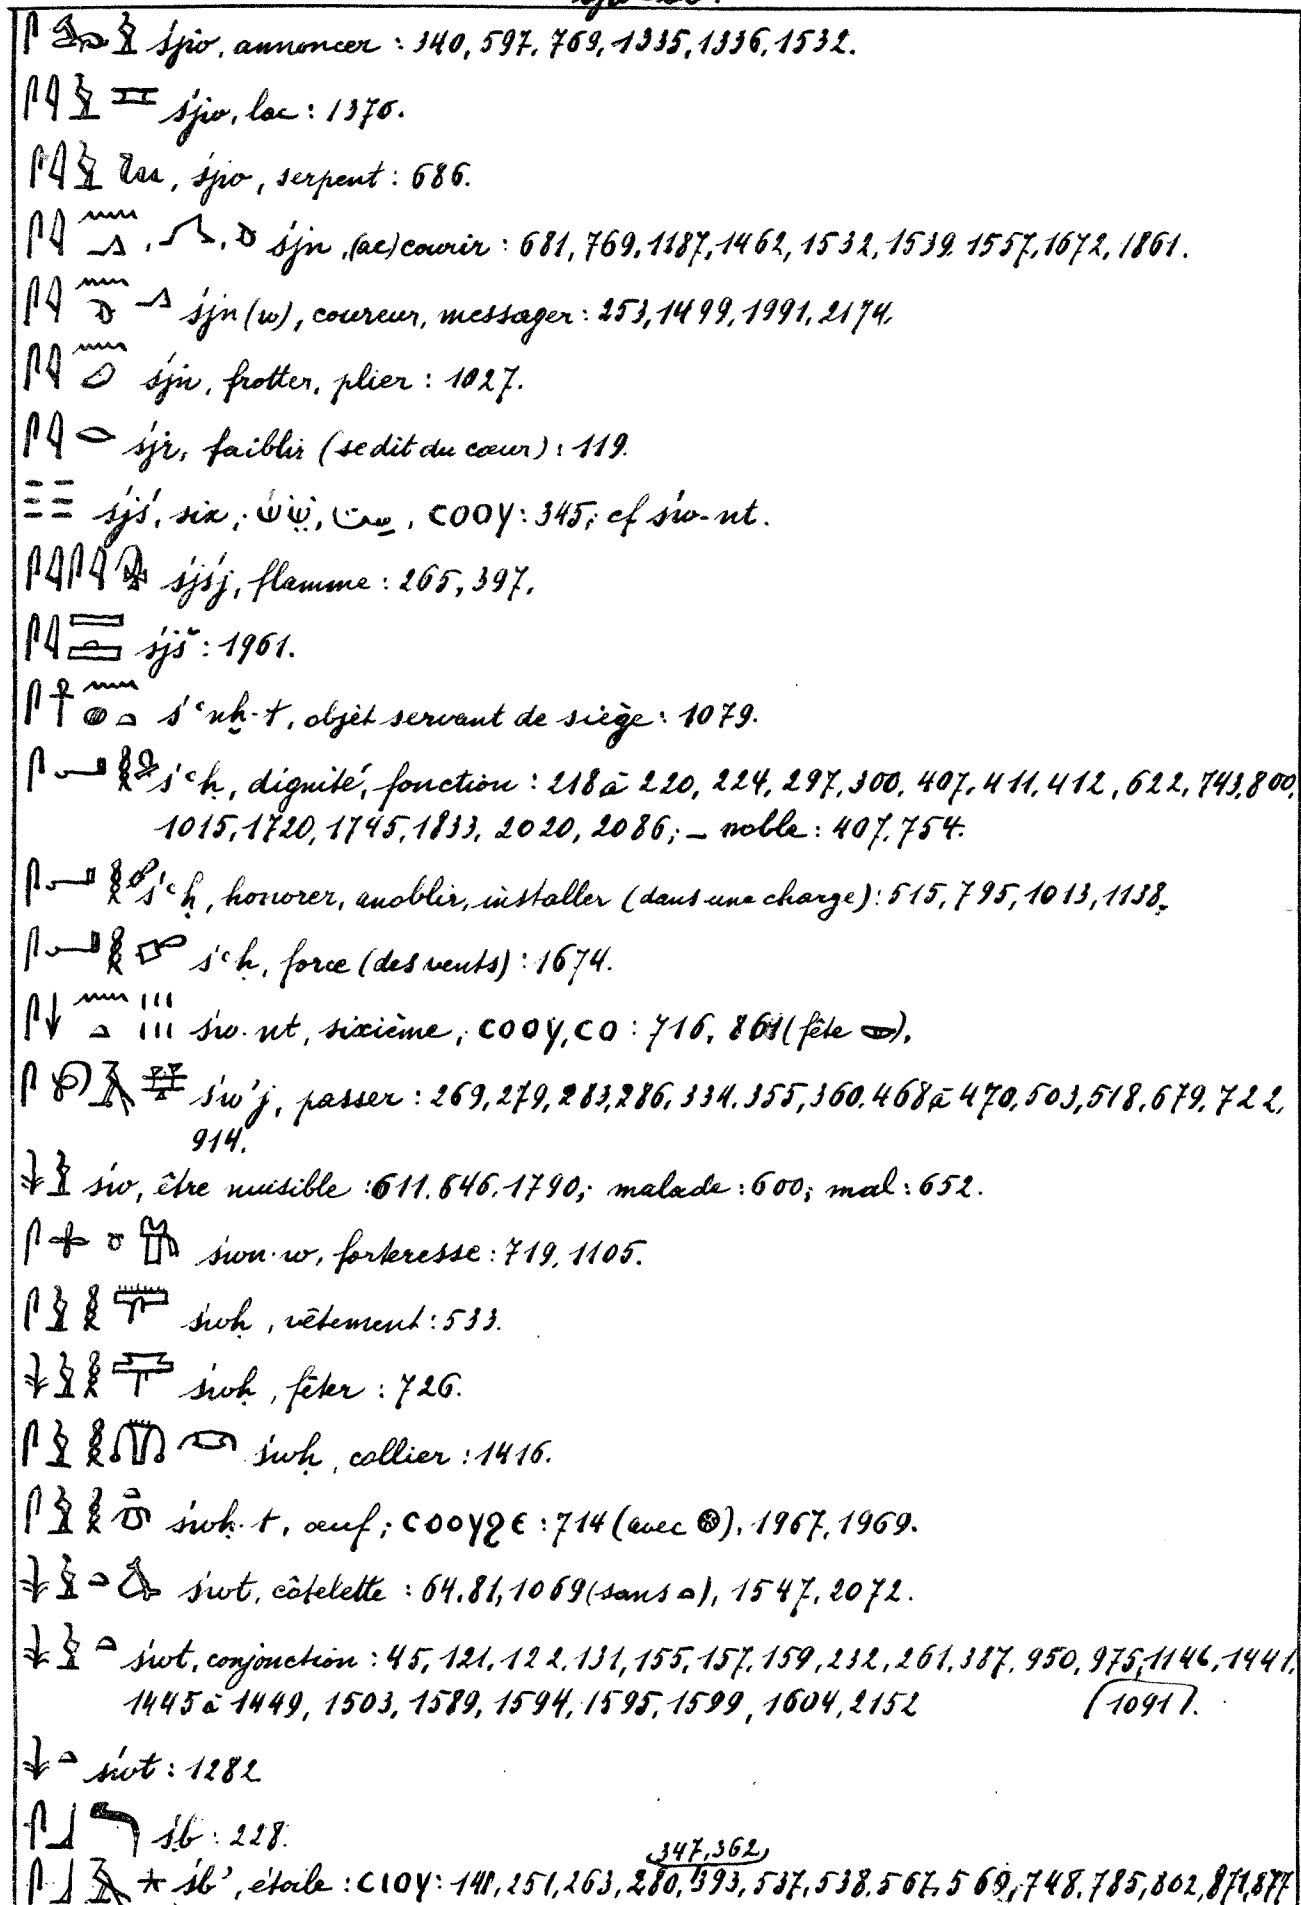 śjw, annoncer : 340, 597, 769, 1335, 1336, 1532.
śjw, lac : 1370.
śjw, serpent : 686.
śjn, (ac)courir : 681, 769, 1187, 1462, 1532, 1539, 1557, 1672, 1861.
śjn(w), coureur, messager : 253, 1499, 1991, 2174.
śjn, frotter, plier : 1027.
śjr, faiblir (se dit du cœur) : 119.
śjś, six ; ست, COOY : 345 ; cf św-nt.
śjśj, flamme : 265, 397.
śjš : 1961.
śʿnḫ-t, objet servant de siège : 1079.
śʿḥ, dignité, fonction : 218 à 220, 224, 297, 300, 407, 411, 412, 622, 743, 800,
1015, 1720, 1745, 1833, 2020, 2086 ; – noble : 407, 754.
śʿḥ, honorer, anoblir, installer (dans une charge) : 515, 795, 1013, 1138.
śʿḥ, force (des vents) : 1674.
św-nt, sixième, COOY, CO : 716, 861 (fête 𓎱).
śwʾj, passer : 269, 279, 283, 286, 334, 355, 360, 468 à 470, 503, 518, 679, 722,
914.
św, être nuisible : 611, 646, 1790 ; malade : 600 ; mal : 652.
śwn-w, forteresse : 719, 1105.
śwḥ, vêtement : 533.
śwḥ, fêter : 726.
śwḥ, collier : 1416.
śwḥ-t, œuf ; COOYϨЄ : 714 (avec 𓊖), 1967, 1969.
śwt, côtelette : 64, 81, 1069 (sans 𓏏), 1547, 2072.
śwt, conjonction : 45, 121, 122, 131, 155, 157, 159, 232, 261, 387, 950, 975, 1146, 1441,
1445 à 1449, 1503, 1589, 1594, 1595, 1599, 1604, 2152 (1091).
śwt : 1282
śb : 228.
347, 362
śbʾ, étoile : CIOY : 251, 263, 280, 393, 537, 538, 567, 569, 748, 785, 802, 871, 877